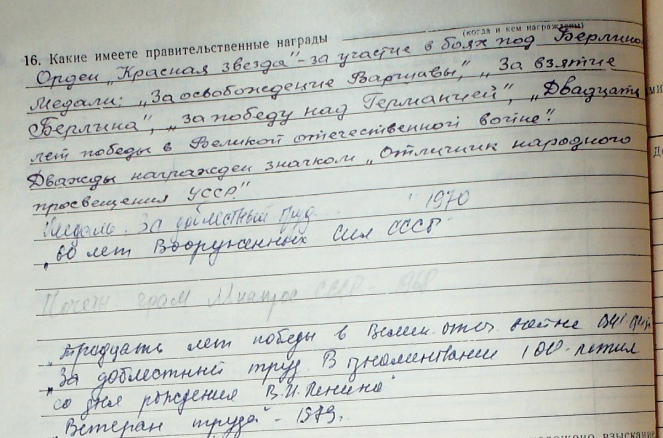 16. Какие имеете правительственные награды
(когда и кем награждены)
Орден „Красная звезда" – за участие в боях под Берлино
Медали: „За освобождение Варшавы", „За взятие
Берлина", „за победу над Германией", „Двадцать
лет победы в Великой отечественной войне".
Дважды награжден значком „Отличник народного
просвещения УССР."
Медаль За доблестный труд 1970
„60 лет Вооруженных Сил СССР
СССР - 1968
„Тридцать лет победы в Велик. отеч. войне
„За доблестный труд В ознаменование 100-летия
со дня рождения В.И. Ленина"
„Ветеран труда" - 1979г.